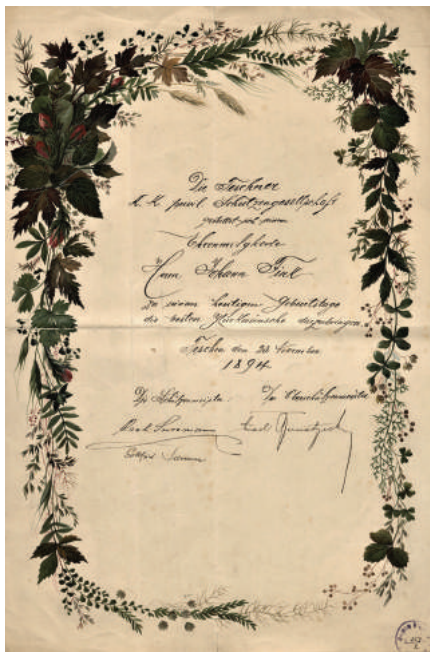 Die Teschner
k. k. priv. Schützengesellschaft
gestattet sich ihrem
Ehrenmitgliede
Herrn Johann Fink
zu seinem heutigen Geburtstage
die besten Glückwünsche darzubringen.
Teschen den 23 November
1894
Die Schützenmeister: Der Oberschützenmeister
Karl